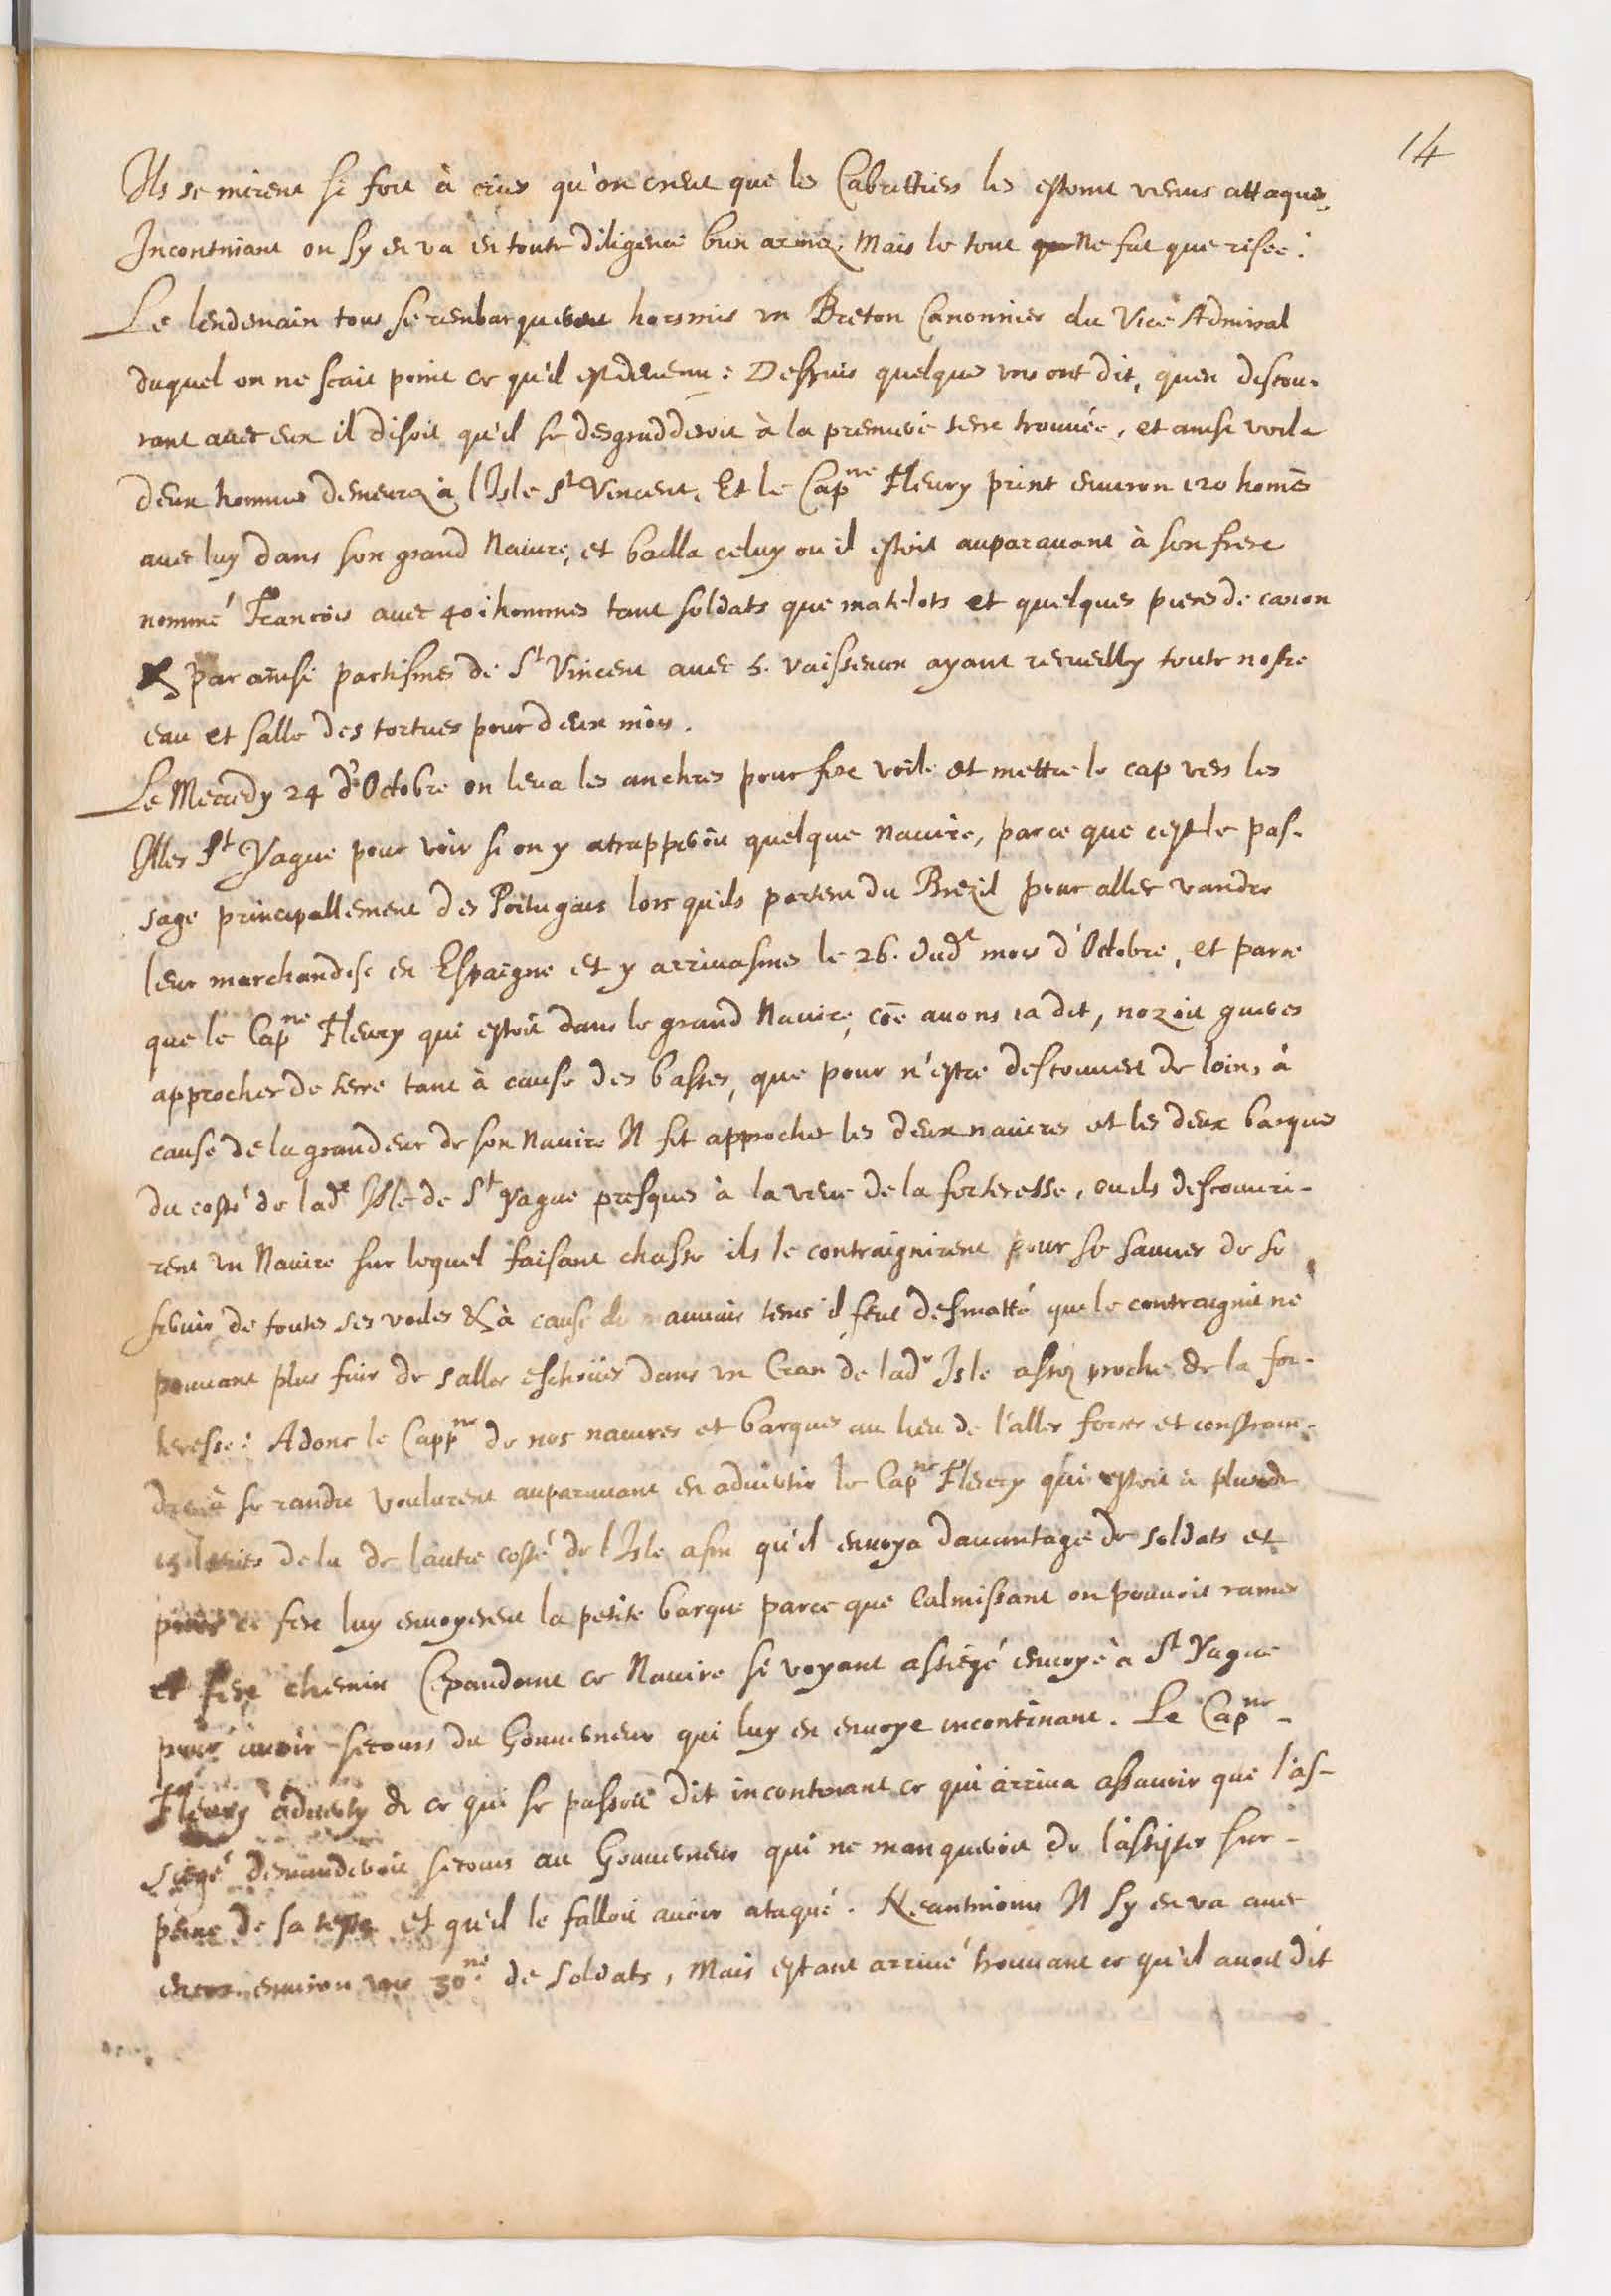 14
Ils se mirent si fort à crier qu'on creut que les Cabrettiers les estoint venus attaquer.
Incontinant on sy en va en toute diligence bien armez, Mais le tout ne fut que risée :
Le lendemain tous se renbarquerent horsmis un Breton Canonnier du Vice Admiral
duquel on ne scait point ce qu'il est devenu : Despuis quelques uns ont dit, quen discou-
rant avec eux il disoit qu'il se desgradderoit à la premiere terre trouvée, et ainsi voila
deux hommes demeurez à l'Isle St Vincent. Et le Capne Fleury print environ 120 homēs
avec luy dans son grand Navire, et bailla celuy ou il estoit auparavant à son frere
nommé François avec 40 hommes tant soldats que matelots et quelques pieces de canon
& par ainsi partismes de St Vincent avec 5. vaisseaux ayant recueilly toute nostre
eau et salle des tortues pour deux mois.
Le Mecredy 24 d'Octobre on leva les anchres pour fere voile et mettre le cap vers les
Isles St Yague pour voir si on y atrapperoit quelque navire, parce que c'est le pas-
sage principallement des Portugais lors quils partent du Brezil pour aller vandre
leur marchandise en Espaigne et y arrivasmes le 26. dudt mois d'Octobre, et parce
que le Capne Fleury qui estoit dans le grand Navire, cōe avons ia dit, nozoit gueres
approcher de terre tant à cause des basses, que pour n'estre descouvert de loin, à
cause de la grandeur de son Navire Il fit approcher les deux navires et les deux barques
du costé de lade Isle de St Yague presques à la veue de la forteresse, ou ils descouvri-
rent un Navire sur lequel faisant chasse ils le contraignirent pour se sauver de se
servir de toutes ses voiles & à cause du mauvais tems il feut desmatté que le contraignit ne
pouvant plus fuir de saller eschoüer dans un Cran de lade Isle assez proche de la for-
teresse : Adonc le Cappne de nos navires et barques au lieu de l'aller forcer et constrain-
dre à se randre voulurent auparavant en advertir le Capne Fleury qui estoit à plus de
15 lieues dela de lautre costé de l'Isle afin qu'il envoya davantage de soldats et
pour ce fere luy envoyerent la petite barque parce que Calmissant on pouvoit ramer
et fere chemin Cepandant ce Navire se voyant assiégé envoye à St Yague
pour avoir secours du Gouverneur qui luy en envoye incontinant. Le Capne
Fleury adverty de ce qui se passoit dit incontinant ce qui arriva assavoir que l'as-
siegé demanderoit secours au Gouverneur qui ne manqueroit de l'assister sur
peine de sa teste et qu'il le falloit avoir ataqué. Neantmoins Il sy en va avec
encor environ une 30ne de soldats, Mais estant arrivé trouvant ce qu'il avoit dit